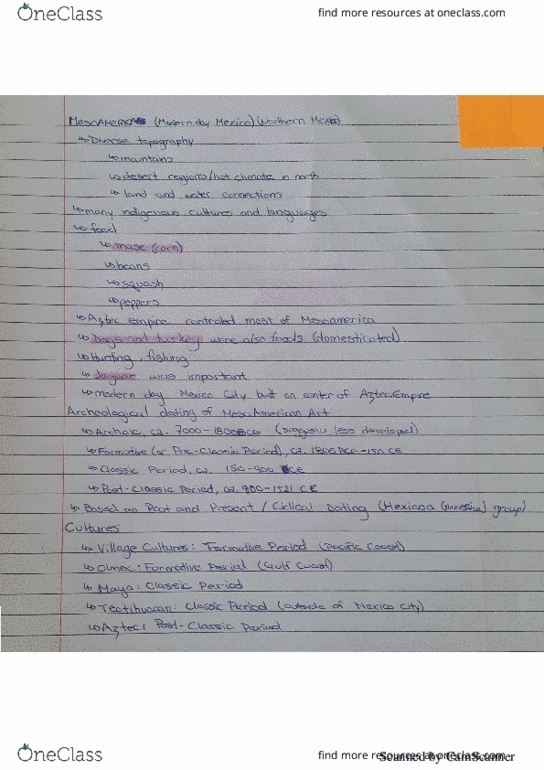 OneClass
find more resources at oneclass.com
MesoAMERICA (Modern day Mexico) (Northern Mexico)
↳ Diverse topography
↳ mountains
↳ desert regions/hot climate in north
↳ land and water connections
↳ many indigenous cultures and languages
↳ food
↳ mase (corn)
↳ beans
↳ squash
↳ peppers
↳ Aztec Empire controled most of Mesoamerica
↳ Dogs and turkey were also foods (domesticated)
↳ Hunting, fishing
↳ Jaguar was important
↳ modern day Mexico City built on center of Aztec Empire
Archeological dating of MesoAmerican Art
↳ Archaic, ca. 7000-1800BCE (suggests less developed)
↳ Formative (or Pre-Classic Period), ca. 1800BCE-150 CE
↳ Classic Period, ca. 150-900 CE
↳ Post-Classic Period, ca. 900-1521 CE
↳ Based on Past and Present / Ciclical Dating (Mexicoa group)
Cultures
↳ Village Cultures: Formative Period (Pacific Coast)
↳ Olmec: Formative Period (Gulf Coast)
↳ Maya: Classic Period
↳ Teotihuacan: Classic Period (outside of Mexico City)
↳ Aztec: Post-Classic Period
OneClass
find more resources at oneclass.com
Scanned by CamScanner